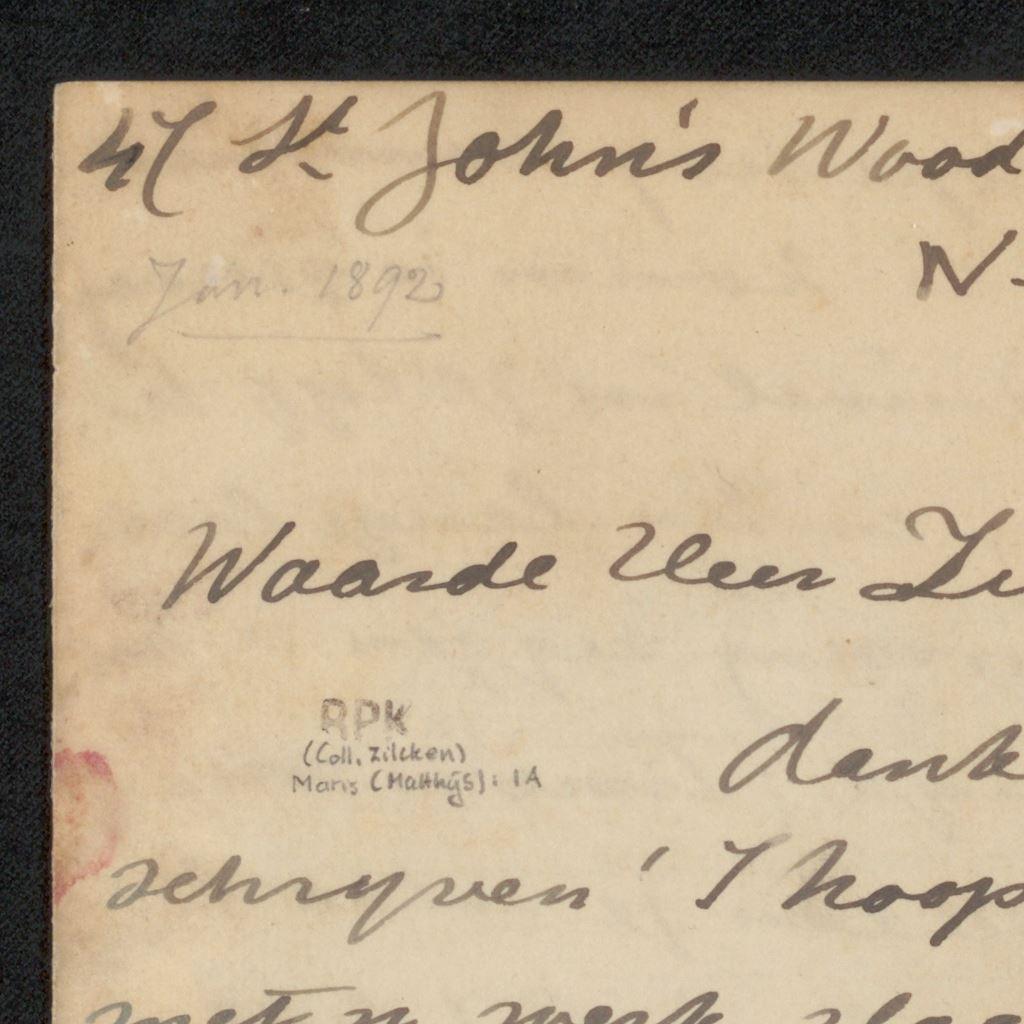 47 St John's Wood
N.
Jan. 1892
Waarde Heer
RPK
(Coll. Zilcken)
Maris (Matthijs): 1A
dank
schrijven ' I hoop
met u werk